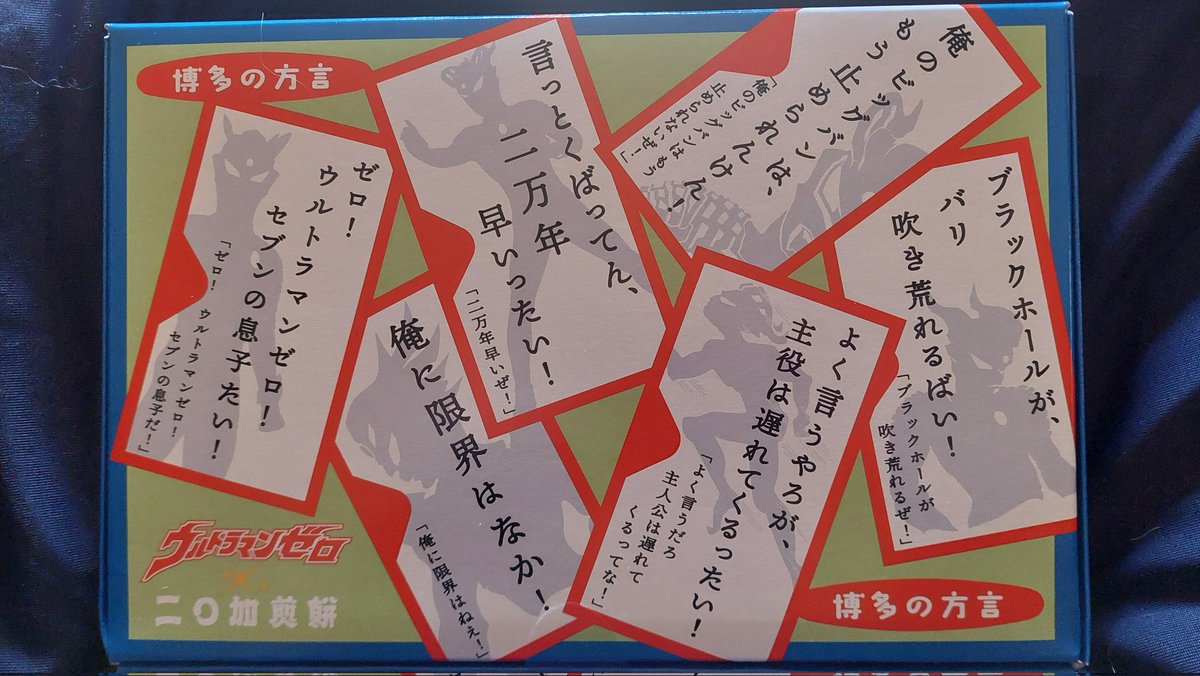 博多の方言
ゼロ!
ウルトラマンゼロ!
セブンの息子たい!
「ゼロ!ウルトラマンゼロ!
セブンの息子だ!」
言っとくばってん、
二万年
早いったい!
「二万年早いぜ!」
俺の
ものビッグバンは、
もう止められんけん!
「俺のビッグバンはもう
止められないぜ!」
ブラックホールが、
バリ
吹き荒れるばい!
「ブラックホールが
吹き荒れるぜ!」
俺に限界はなか!
「俺に限界はねぇ!」
よく言うやろが、
主役は遅れてくるったい!
「よく言うだろ
主人公は遅れて
くるってな!」
ウルトラマンゼロ
×
二〇加煎餅
博多の方言